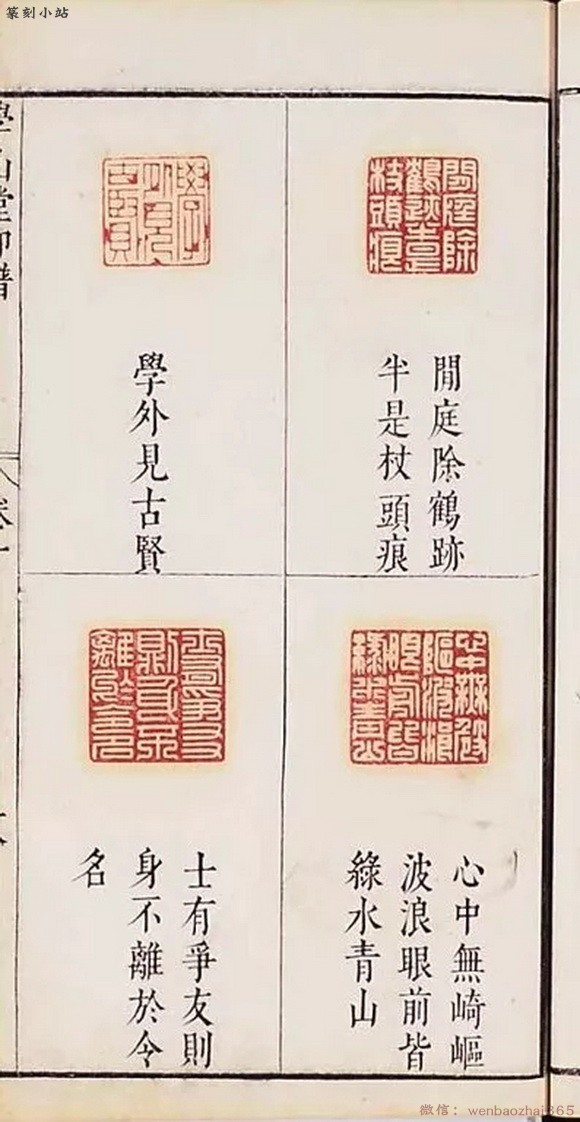 篆刻小站
學山堂印譜
卷一
閒庭除鶴跡
半是杖頭痕
學外見古賢
心中無崎嶇
波浪眼前皆
綠水青山
士有爭友則
身不離於令
名
微信：wenbaozhai365